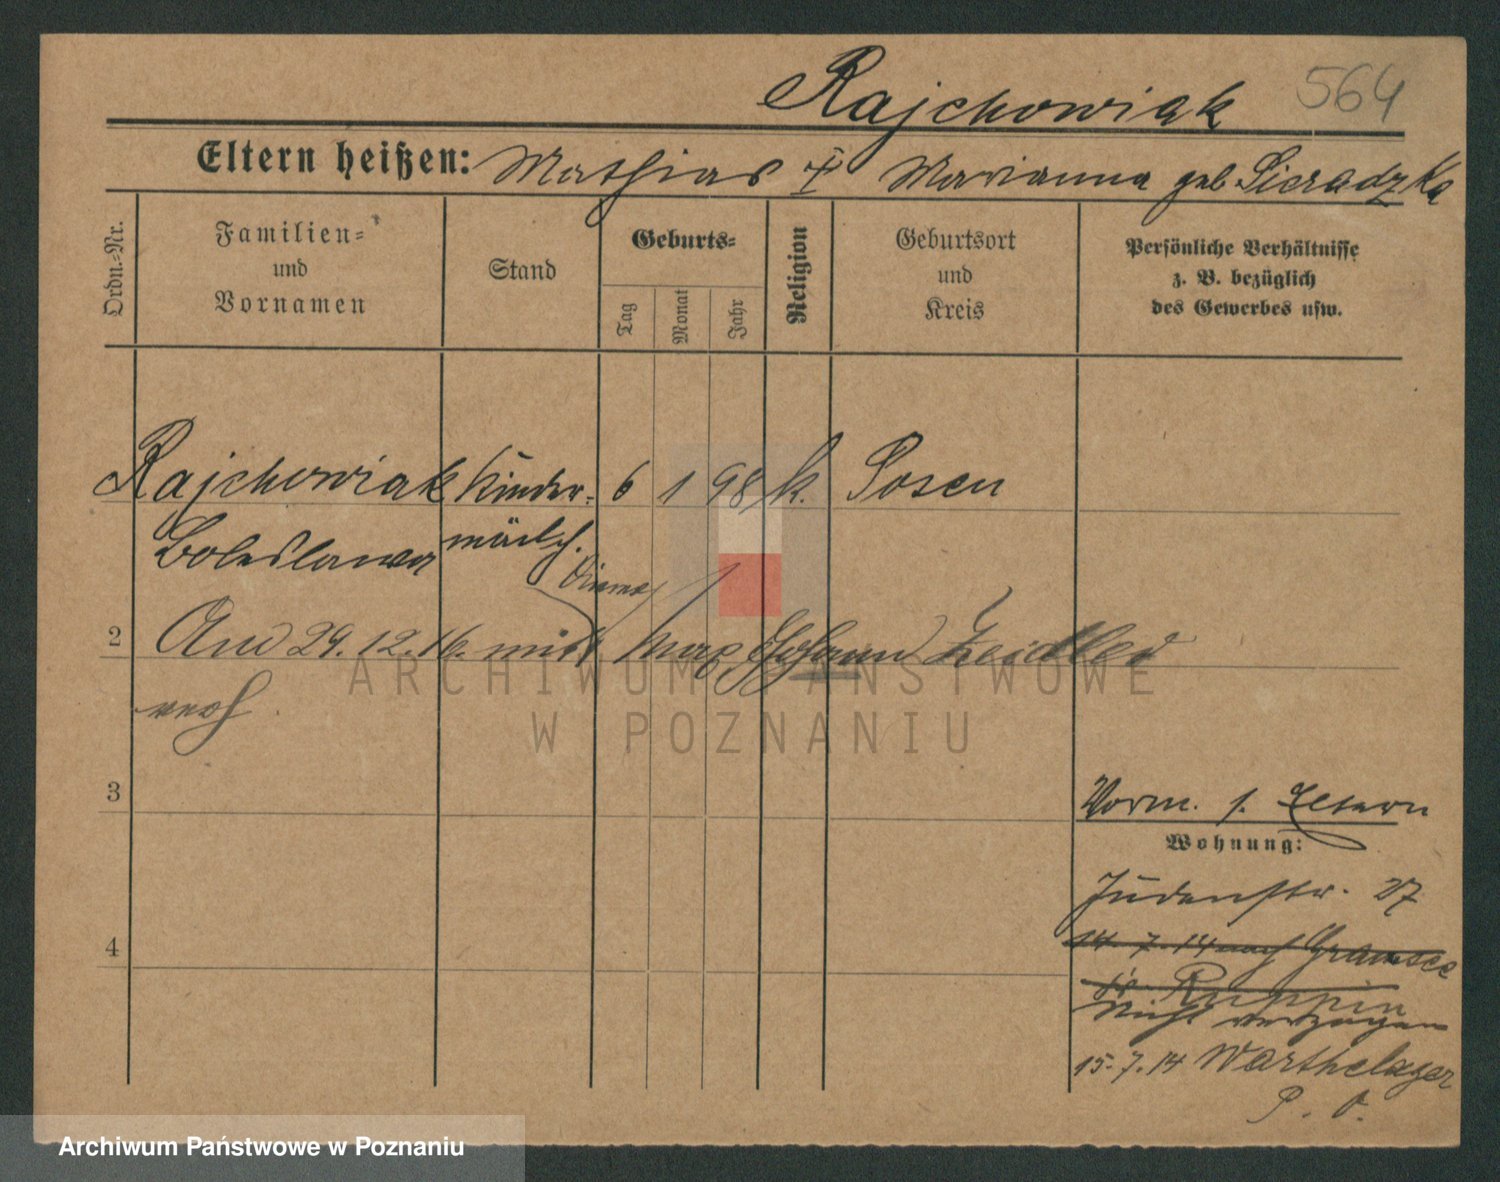 Rajchowiak 564
Eltern heißen: Mathias † Marianna geb Sieradzka
Ordn.-Nr.
Familien-
und
Vornamen
Stand
Geburts-
Tag
Monat
Jahr
Religion
Geburtsort
und
Kreis
Persönliche Verhältnisse
z. B. bezüglich
des Gewerbes usw.
Rajchowiak Kinder- 6 1 98 k. Posen
Boleslawa mädch.
2 Am 29.12.16. mit Johann Zeidler
verh
3
4
Vorm. s. Eltern
Wohnung:
Judenstr. 27
14. 7. 14 nach Gransee
Kr. Ruppin
Nicht verzogen
15. 7. 14 Warthelager
P. O.
ARCHIWUM PAŃSTWOWE
W POZNANIU
Archiwum Państwowe w Poznaniu